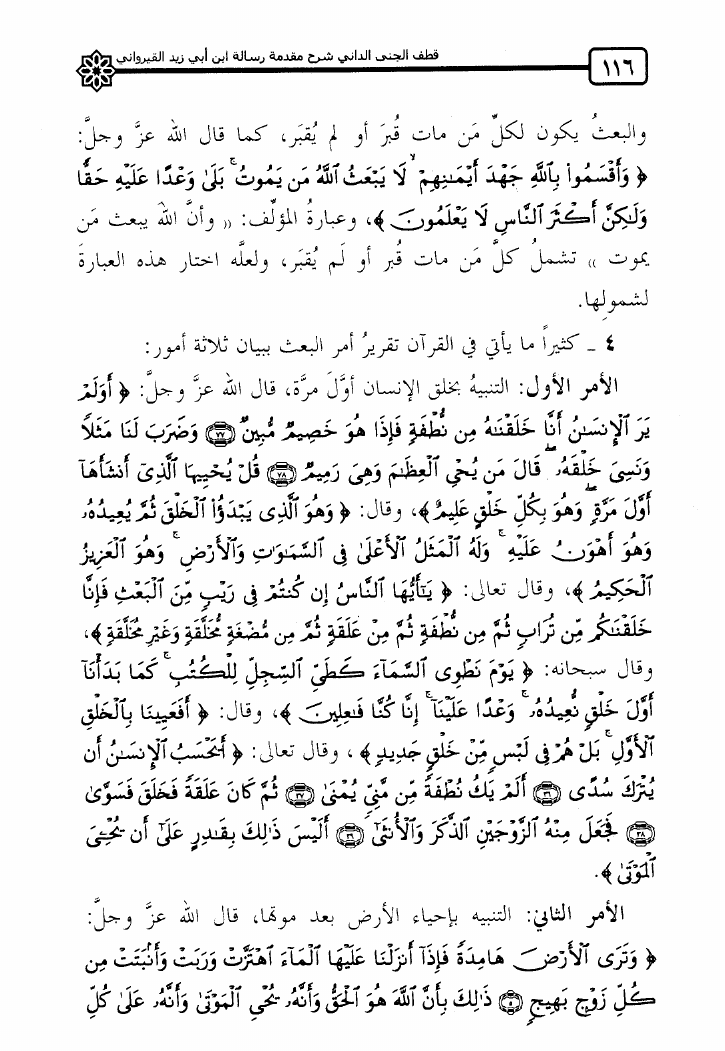 ١١٦
قطف الجنى الداني شرح مقدمة رسالة ابن أبي زيد القيرواني
والبعثُ يكون لكلِّ مَن مات قُبرَ أو لم يُقبَر، كما قال الله عزَّ وجلَّ:
﴿ وَأَقْسَمُوا۟ بِٱللَّهِ جَهْدَ أَيْمَـٰنِهِمْ ۙ لَا يَبْعَثُ ٱللَّهُ مَن يَمُوتُ ۚ بَلَىٰ وَعْدًا عَلَيْهِ حَقًّا
وَلَـٰكِنَّ أَكْثَرَ ٱلنَّاسِ لَا يَعْلَمُونَ ﴾، وعبارةُ المؤلِّف: (( وأنَّ اللهَ يبعث مَن
يموت )) تشملُ كلَّ مَن مات قُبر أو لَم يُقبَر، ولعلَّه اختار هذه العبارةَ
لشمولِها.
٤ ـ كثيراً ما يأتي في القرآن تقريرُ أمر البعث ببيان ثلاثة أمور:
الأمر الأول: التنبيهُ بخلق الإنسان أوَّلَ مرَّة، قال الله عزَّ وجلَّ: ﴿ أَوَلَمْ
يَرَ ٱلْإِنسَـٰنُ أَنَّا خَلَقْنَـٰهُ مِن نُّطْفَةٍ فَإِذَا هُوَ خَصِيمٌ مُّبِينٌ ٧٧ وَضَرَبَ لَنَا مَثَلًا
وَنَسِىَ خَلْقَهُۥ ۖ قَالَ مَن يُحْىِ ٱلْعِظَـٰمَ وَهِىَ رَمِيمٌ ٧٨ قُلْ يُحْيِيهَا ٱلَّذِىٓ أَنشَأَهَآ
أَوَّلَ مَرَّةٍ ۖ وَهُوَ بِكُلِّ خَلْقٍ عَلِيمٌ ﴾، وقال: ﴿ وَهُوَ ٱلَّذِى يَبْدَؤُا۟ ٱلْخَلْقَ ثُمَّ يُعِيدُهُۥ
وَهُوَ أَهْوَنُ عَلَيْهِ ۚ وَلَهُ ٱلْمَثَلُ ٱلْأَعْلَىٰ فِى ٱلسَّمَـٰوَٰتِ وَٱلْأَرْضِ ۚ وَهُوَ ٱلْعَزِيزُ
ٱلْحَكِيمُ ﴾، وقال تعالى: ﴿ يَـٰٓأَيُّهَا ٱلنَّاسُ إِن كُنتُمْ فِى رَيْبٍ مِّنَ ٱلْبَعْثِ فَإِنَّا
خَلَقْنَـٰكُم مِّن تُرَابٍ ثُمَّ مِن نُّطْفَةٍ ثُمَّ مِنْ عَلَقَةٍ ثُمَّ مِن مُّضْغَةٍ مُّخَلَّقَةٍ وَغَيْرِ مُخَلَّقَةٍ ﴾،
وقال سبحانه: ﴿ يَوْمَ نَطْوِى ٱلسَّمَآءَ كَطَىِّ ٱلسِّجِلِّ لِلْكُتُبِ ۚ كَمَا بَدَأْنَآ
أَوَّلَ خَلْقٍ نُّعِيدُهُۥ ۚ وَعْدًا عَلَيْنَآ ۚ إِنَّا كُنَّا فَـٰعِلِينَ ﴾، وقال: ﴿ أَفَعَيِينَا بِٱلْخَلْقِ
ٱلْأَوَّلِ ۚ بَلْ هُمْ فِى لَبْسٍ مِّنْ خَلْقٍ جَدِيدٍ ﴾، وقال تعالى: ﴿ أَيَحْسَبُ ٱلْإِنسَـٰنُ أَن
يُتْرَكَ سُدًى ٣٦ أَلَمْ يَكُ نُطْفَةً مِّن مَّنِىٍّ يُمْنَىٰ ٣٧ ثُمَّ كَانَ عَلَقَةً فَخَلَقَ فَسَوَّىٰ
٣٨ فَجَعَلَ مِنْهُ ٱلزَّوْجَيْنِ ٱلذَّكَرَ وَٱلْأُنثَىٰٓ ٣٩ أَلَيْسَ ذَٰلِكَ بِقَـٰدِرٍ عَلَىٰٓ أَن يُحْـِۧىَ
ٱلْمَوْتَىٰ ﴾.
الأمر الثاني: التنبيه بإحياء الأرض بعد موتها، قال الله عزَّ وجلَّ:
﴿ وَتَرَى ٱلْأَرْضَ هَامِدَةً فَإِذَآ أَنزَلْنَا عَلَيْهَا ٱلْمَآءَ ٱهْتَزَّتْ وَرَبَتْ وَأَنۢبَتَتْ مِن
كُلِّ زَوْجٍۭ بَهِيجٍ ٥ ذَٰلِكَ بِأَنَّ ٱللَّهَ هُوَ ٱلْحَقُّ وَأَنَّهُۥ يُحْىِ ٱلْمَوْتَىٰ وَأَنَّهُۥ عَلَىٰ كُلِّ